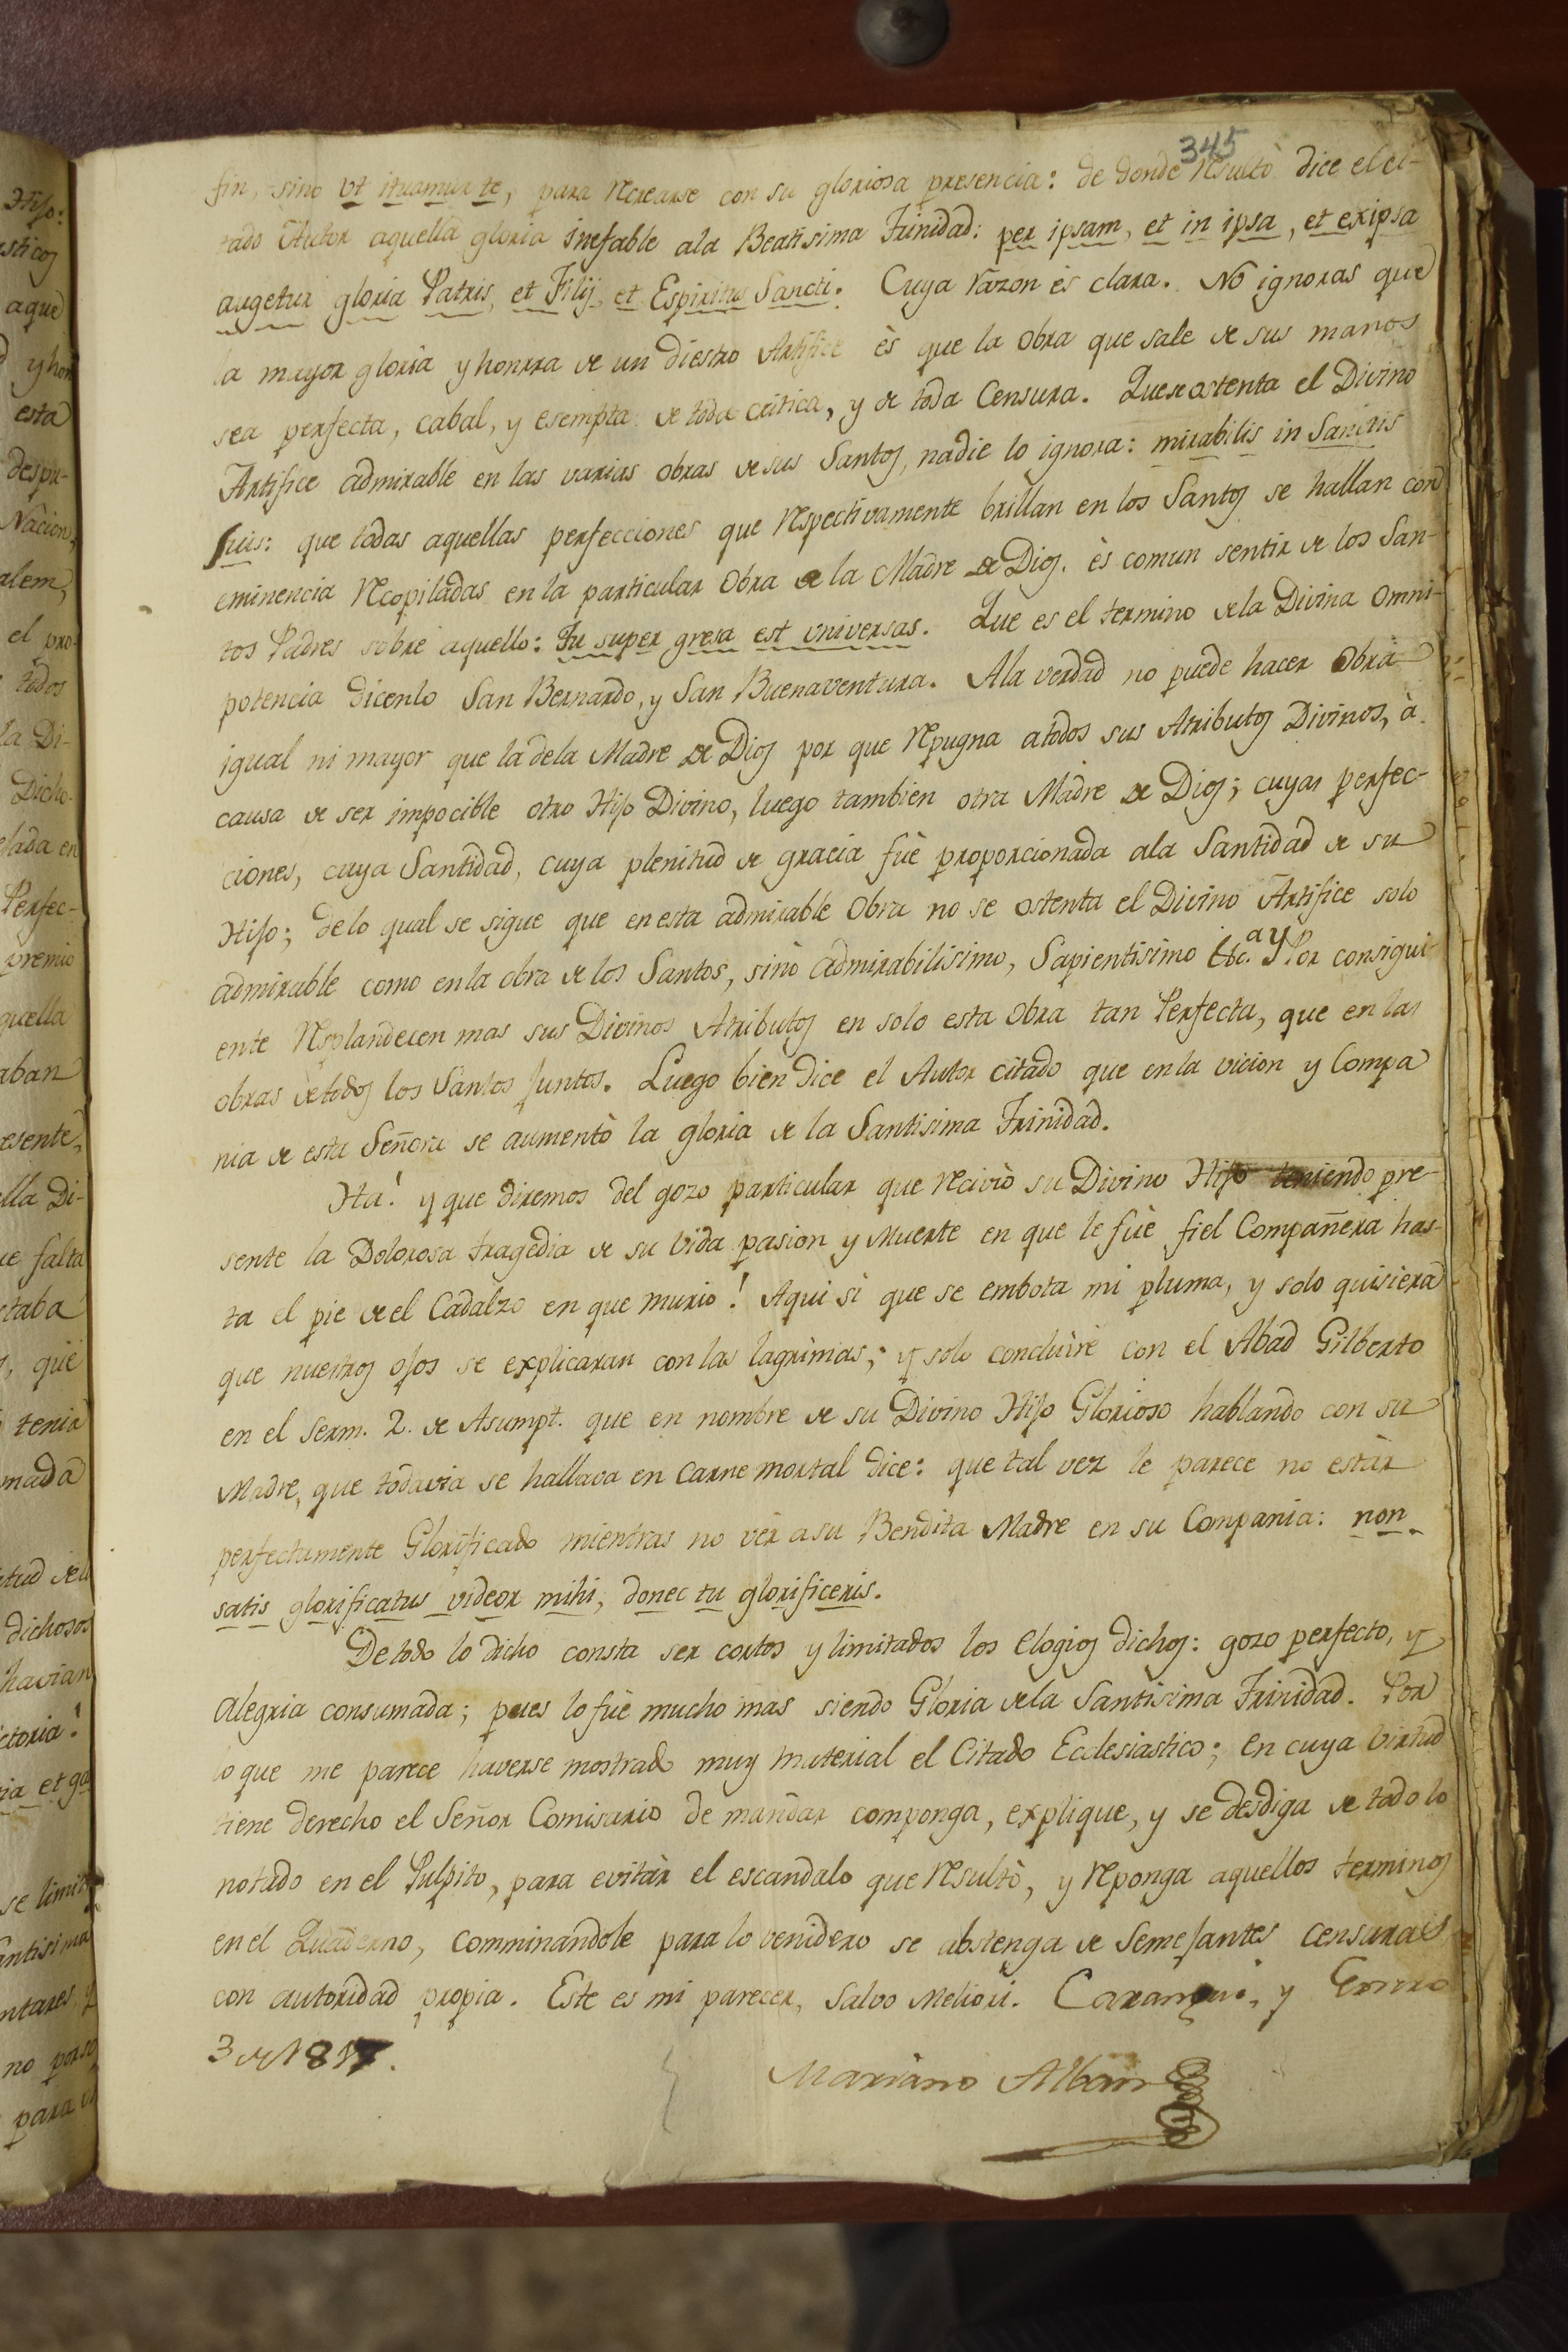 345
fin, sino vt ituamur te, para recrearse con su gloriosa presencia: de donde resultò dice el ci-
tado Autor aquella gloria inefable ala Beatisima Trinidad: per ipsam, et in ipsa, et ex ipsa
augetur gloria Patris, et Filij, et Espiritus Sancti. Cuya razon ès clara. No ignoras que
la mayor gloria y honrra de un diestro Artifice ès que la Obra que sale de sus manos
sea perfecta, cabal, y esempta de toda critica, y de toda Censura. Que se ostenta el Divino
Artifice admirable en las varias obras de sus Santos, nadie lo ignora: mirabilis in Sanctis
suis: que todas aquellas perfecciones que respectivamente brillan en los Santos se hallan con
eminencia recopiladas en la particular Obra de la Madre de Dios. ès comun sentir de los San-
tos Padres sobre aquello: Tu super gresa est vniversas. Que es el termino de la Divina Omni-
potencia dicenlo San Bernardo, y San Buenaventura. Ala verdad no puede hacer Obra
igual ni mayor que la dela Madre de Dios por que repugna atodos sus Atributos Divinos, à
causa de ser impocible otro Hijo Divino, luego tambien otra Madre de Dios; cuyas perfec-
ciones, cuya Santidad, cuya plenitud de gracia fuè proporcionada ala Santidad de su
Hijo; delo qual se sigue que en esta admirable Obra no se ostenta el Divino Artifice solo
admirable como en la obra de los Santos, sinò admirabilisimo, Sapientisimo &c.a y Por consigui-
ente resplandecen mas sus Divinos Atributos en solo esta Obra tan Perfecta, que en las
obras de todos los Santos Juntos. Luego bien dice el Autor citado que en la vicion y Compa
nia de esta Señora se aumentò la gloria de la Santisima Trinidad.
Ha! y que diremos del gozo particular que recivio su Divino Hijo teniendo pre-
sente la Dolorosa tragedia de su vida pasion y Muerte en que le fuè fiel Compañera has-
ta el pie de el Cadalzo en que murio! Aqui si que se embota mi pluma, y solo quisiera
que nuestros ojos se explicaran con las lagrimas; y solo concluirè con el Abad Gilberto
en el Serm. 2. de Asumpt. que en nombre de su Divino Hijo Glorioso hablando con su
Madre, que todavia se hallava en Carne mortal dice: que tal vez le parece no estàr
perfectamente Glorificado mientras no vèr asu Bendita Madre en su Compania: non
satis glorificatus videor mihi, donec tu glorificeris.
De todo lo dicho consta ser cortos y limitados los elogios dichos: gozo perfecto, y
Alegria consumada; pues lo fuè mucho mas siendo Gloria dela Santisima Trinidad. Por
lo que me parece haverse mostrado muy material el Citado Ecclesiastico; en cuya virtud
tiene derecho el Señor Comisario de mandar componga, explique, y se desdiga de todo lo
notado en el Pulpito, para evitàr el escandalo que resultò, y reponga aquellos terminos
en el Quaderno, comminandole para lo venidero se abstenga de Semejantes censuras
con autoridad propia. Este es mi parecer, Salvo Meliori. Caranqui, y Enero
3 de 1817.
Mariano Alban